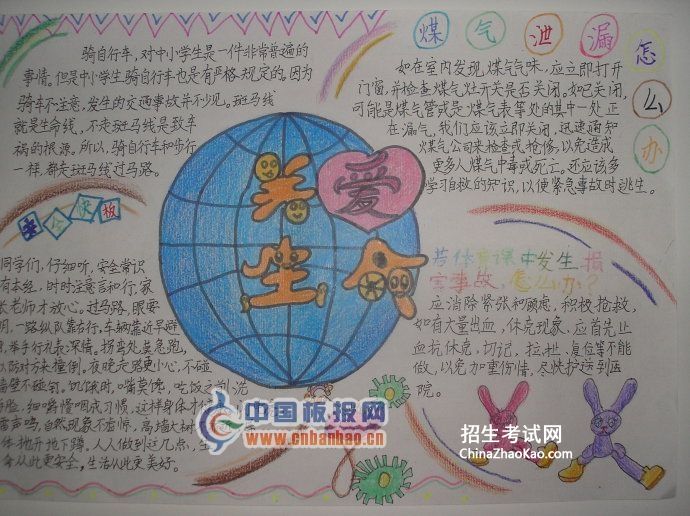 骑自行车,对中小学生是一件非常普遍的
事情。但是中小学生骑自行车也是有严格规定的。因为
骑车不注意,发生的交通事故并不少见。斑马线
就是生命线,不走斑马线是致车
祸的根源。所以,骑自行车和步行
一样,都走斑马线过马路。
煤气泄漏怎么办
如在室内发现煤气气味,应立即打开
门窗,并检查煤气灶开关是否关闭。如已关闭,
可能是煤气管或是煤气表等处的其中一处正
在漏气,我们应该立即关闭,迅速通知
煤气公司来检查或抢修,以免造成
更多人煤气中毒或死亡。还应该多
学习自救的知识,以便紧急事故时逃生。
关爱
生命
安全
板
同学们,仔细听,安全常识
有本经,时时注意言和行,家
长老师才放心。过马路,眼要
明,一路纵队靠右行,车辆靠近早
,举手行礼表深情。拐弯处莫急跑,
以防对方来撞倒,夜晚走路更小心,不碰
墙壁不碰钉。饥饿时,嘴莫馋,吃饭之前
细嚼慢咽成习惯,这样身体才
雷声鸣,自然现象不虚惊,高墙大树
体地开地下蹲。人人做到这几点,生
命从此更安全,生活从此更美好。
若体育课中发生损
害事故,怎么办?
应消除紧张和顾虑,积极抢救,
如有大量出血,休克现象,应首先止
血抗休克,切记,拉扯,复位等不能
做,以免加重伤情,尽快护送到医
院。
中国板报网
www.cnbanbao.cn
招生考试网
ChinaZhaoKao.com